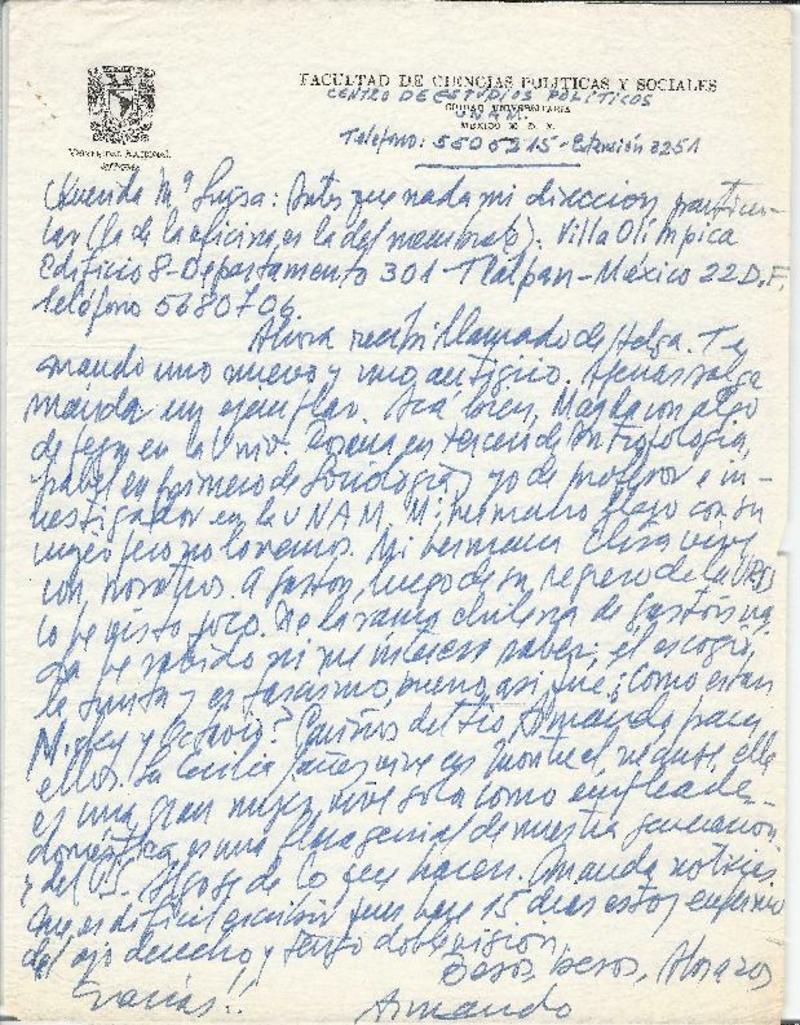 FACULTAD DE CIENCIAS POLITICAS Y SOCIALES
CENTRO DE ESTUDIOS POLÍTICOS
CIUDAD UNIVERSITARIA
UNAM.
MEXICO D. F.
Teléfono: 5505215 - Extensión 3251
UNIVERSIDAD NACIONAL
Querida Mª Luisa: Antes que nada mi direccion particu-
lar (la de la oficina es la del membrete): Villa Olímpica
Edificio 8 - Departamento 301 - Tlalpan - México 22 D.F.
Teléfono 5680706.
Ahora recibí llamado de Helga. Te
mando uno nuevo y uno antiguo. Apenas salga
manda un ejemplar. Acá bien, Magda con algo
de pega en la Univ. en tercero de Antropologia,
en primero de Sociologia y yo de profesor e in-
vestigador en la UNAM. Mi hermano llegó con su
mujer pero no lo vemos. Mi hermana Elisa vive
con nosotros. A Gastón, luego de su regreso de la URSS
lo he visto poco. De la rama chilena de Gastón na-
da he sabido ni me interesa saber, él escogió,
la Junta y es fascismo, bueno, así fue. ¿Como estan
y Octavio? Cariños del tio Armando para
ellos. La Cecilia vive en Montreal, ella
es una gran mujer, vive sola como empleada
doméstica, es una flor genial de nuestra generación
y del PS. Algo sé de lo que hacen. Manda noticias.
Que es difícil escribir pues hace 15 dias estoy enfermo
del ojo derecho y tengo doble visión.
Besos, besos, Abrazos
Gracias!!
Armando